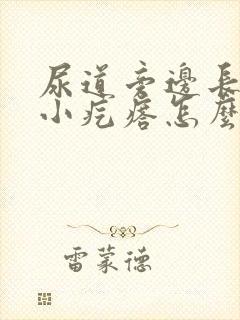 尿道旁邊長
小疙瘩怎麼
雷蒙德